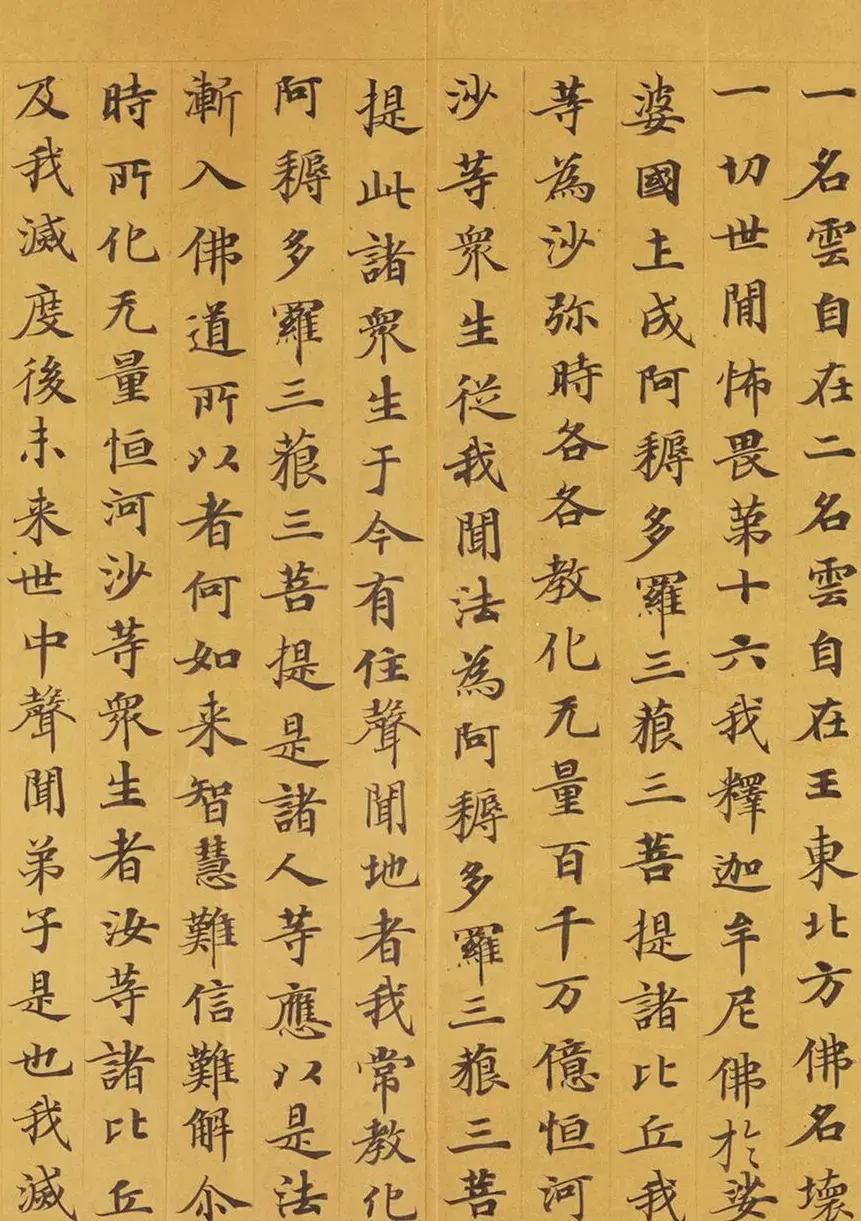 一名雲自在二名雲自在王東北方佛名壞
一切世閒怖畏苐十六我釋迦牟尼佛於娑
婆國土成阿耨多羅三藐三菩提諸比丘我
等為沙弥時各各教化无量百千万億恒河
沙等眾生從我聞法為阿耨多羅三藐三菩
提此諸眾生于今有住聲聞地者我常教化
阿耨多羅三藐三菩提是諸人等應以是法
漸入佛道所以者何如来智慧難信難解尒
時所化无量恒河沙等眾生者汝等諸比丘
及我滅度後未来世中聲聞弟子是也我滅